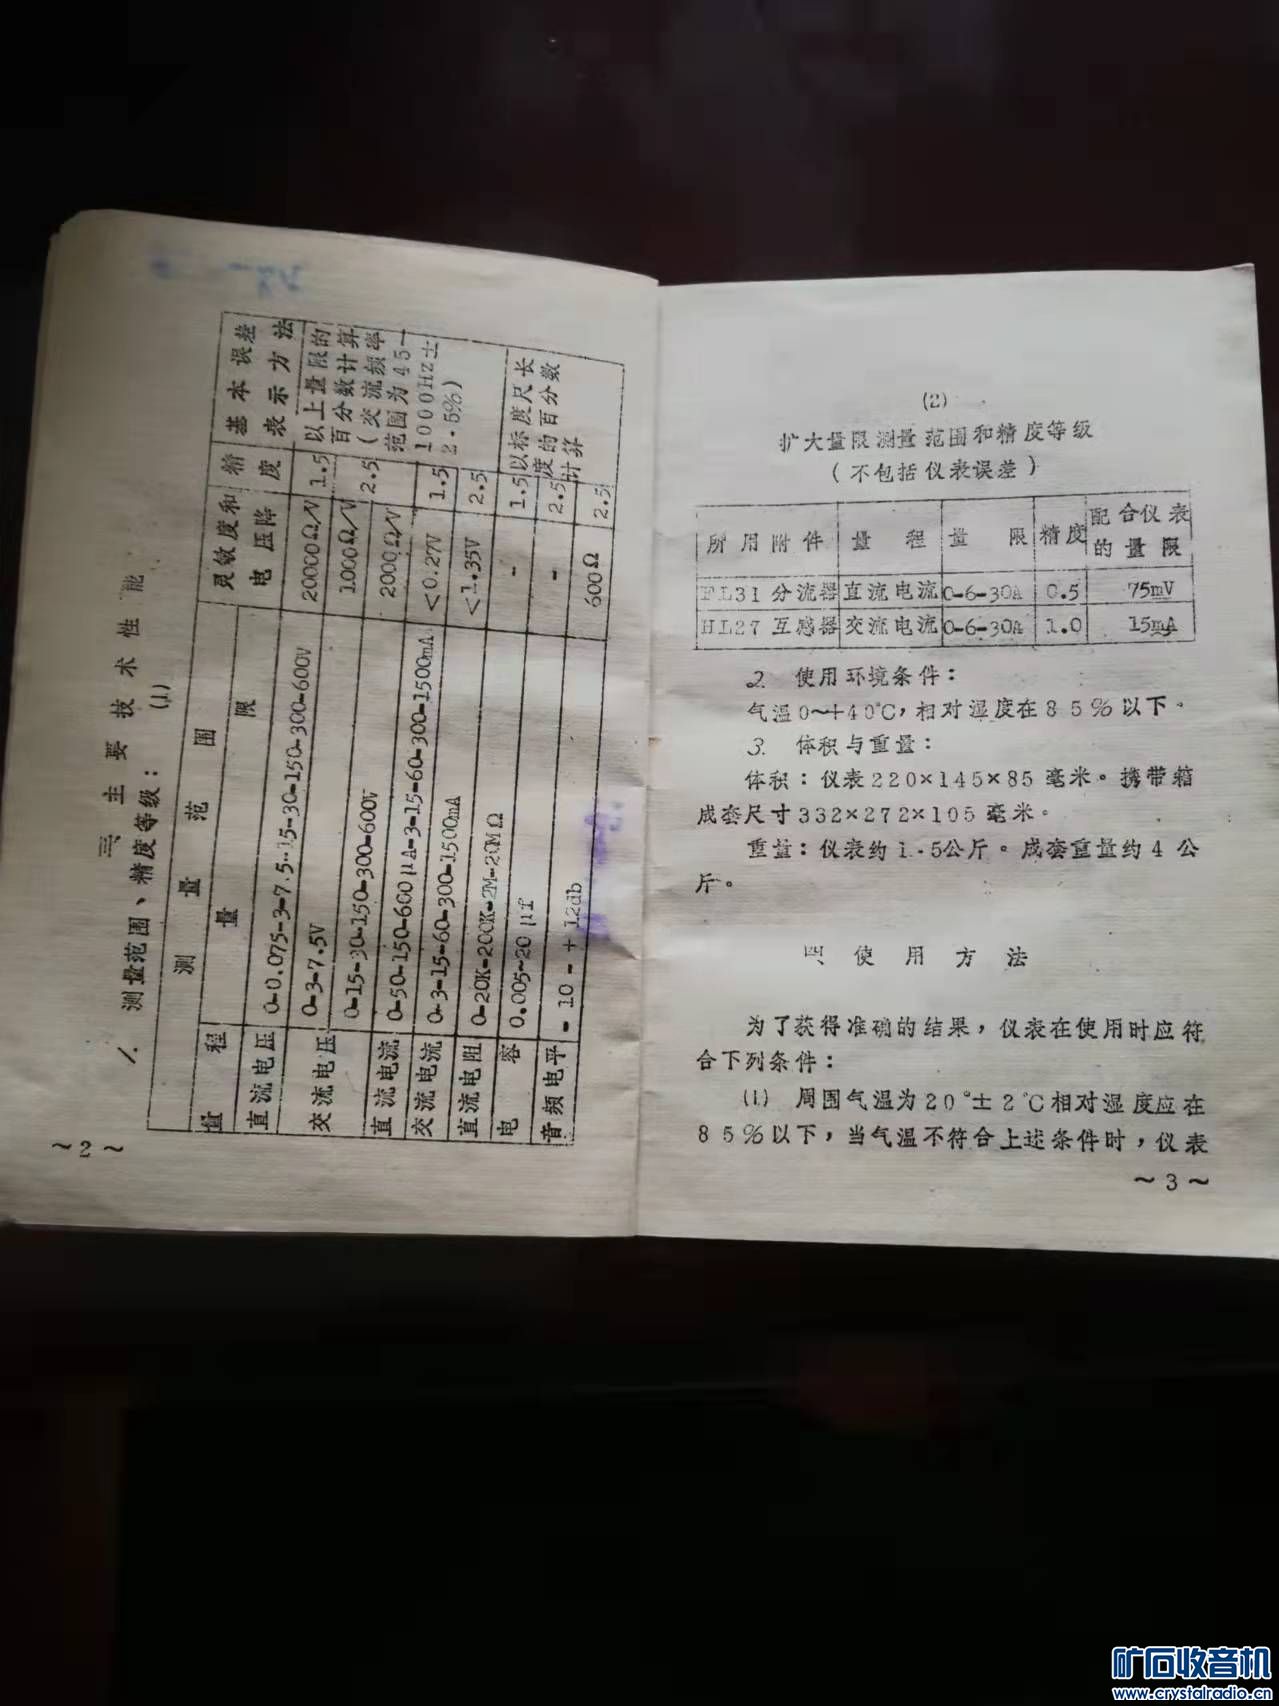 三、主要技术性能
1. 测量范围、精度等级：
(1)
测量范围 灵敏度和电压降 精度 基本误差表示方法
量程 量限
直流电压 0-0.075-3-7.5-15-30-150-300-600V 20000Ω/V 1.5 以上量限的百分数计算(交流频率范围为45—1000Hz±2.5%)
交流电压 0-3-7.5V 1000Ω/V 2.5
0-15-30-150-300-600V 2000Ω/V
直流电流 0-50-150-600μA-3-15-60-300-1500mA <0.27V 1.5
交流电流 0-3-15-60-300-1500mA <1.35V 2.5
直流电阻 0-20K-200K-2M-20MΩ - 1.5 以标度尺长度的百分数计算
电容 0.005~20μf - 2.5
音频电平 -10-+12db 600Ω 2.5
~2~
(2)
扩大量限测量范围和精度等级
(不包括仪表误差)
所用附件 量程 量限 精度 配合仪表的量限
FL31分流器 直流电流 0-6-30A 0.5 75mV
HL27互感器 交流电流 0-6-30A 1.0 15mA
2. 使用环境条件：
气温0~+40℃，相对湿度在85%以下。
3. 体积与重量：
体积：仪表220×145×85毫米。携带箱
成套尺寸332×272×105毫米。
重量：仪表约1.5公斤。成套重量约4公
斤。
四 使用方法
为了获得准确的结果，仪表在使用时应符
合下列条件：
(1) 周围气温为20°±2℃相对湿度应在
85%以下，当气温不符合上述条件时，仪表
~3~
矿石收音机
www.crystalradio.cn